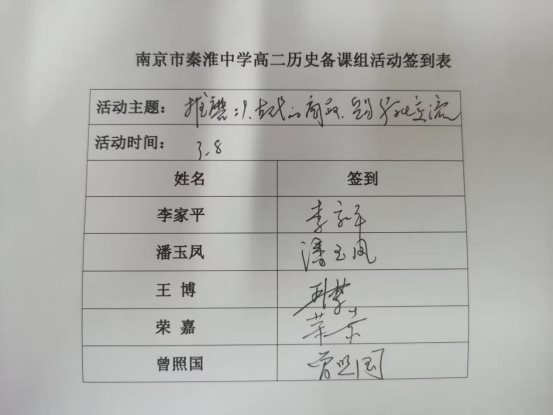 南京市秦淮中学高二历史备课组活动签到表
活动主题: 推磨:9.古代的商路、贸易与文化交流
活动时间: 3.8
姓名 签到
李家平 李家平
潘玉凤 潘玉凤
王 博 王博
荣 嘉 荣嘉
曾照国 曾照国